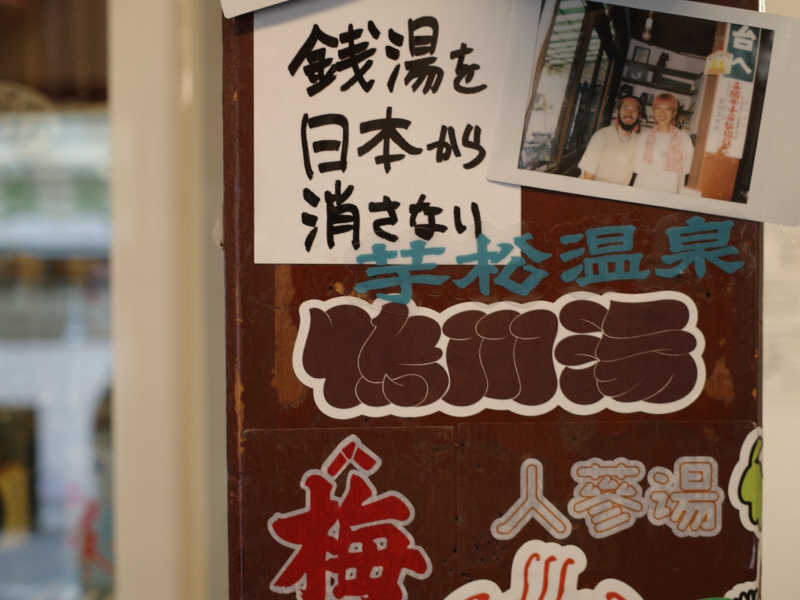 銭湯を
日本から
消さない
台へ
芋松温泉
佐川湯
人蔘湯
梅